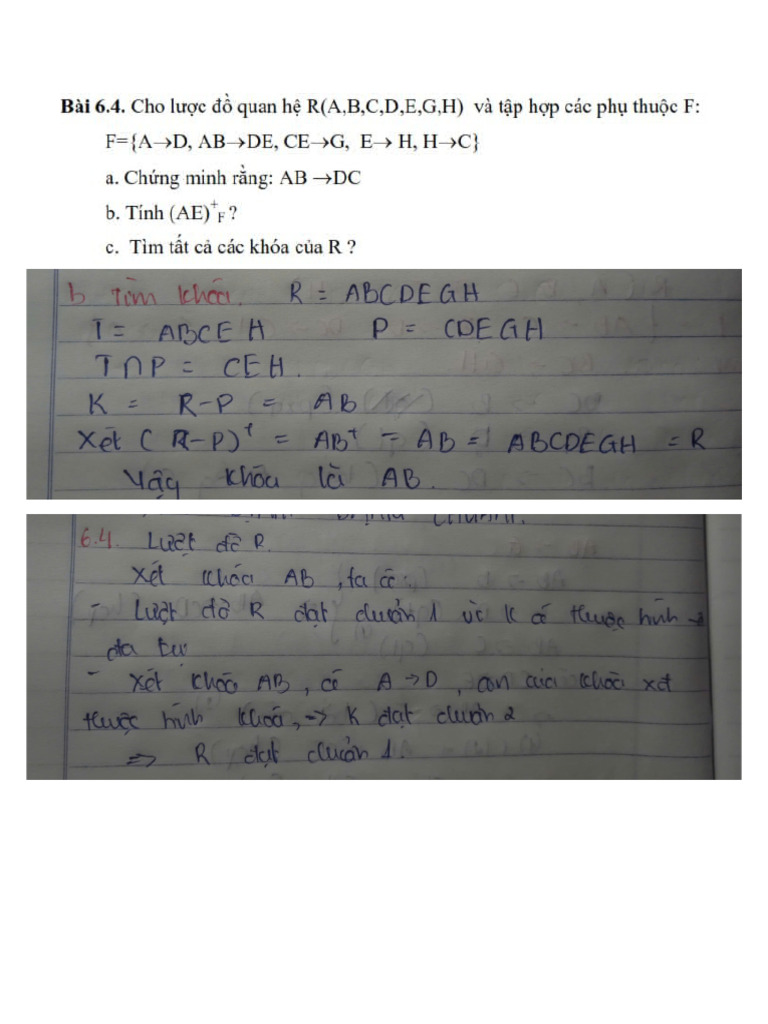 Bài 6.4. Cho lược đồ quan hệ R(A,B,C,D,E,G,H) và tập hợp các phụ thuộc F:
F={A→D, AB→DE, CE→G, E→ H, H→C}
a. Chứng minh rằng: AB →DC
b. Tính (AE)⁺F ?
c. Tìm tất cả các khóa của R ?
b Tìm khóa. R = ABCDEGH
T = ABCEH P = CDEGH
T∩P = CEH.
K = R-P = AB
Xét (R-P)⁺ = AB⁺ = AB = ABCDEGH = R
Vậy khóa là AB.
6.4. Lượt đồ R.
Xét khóa AB, ta có:
- Lượt đồ R đạt chuẩn 1 vì K có thuộc tính
đa trị
- Xét khóa AB, có A→D, con của khóa xét
thuộc tính khóa, => K đạt chuẩn 2
=> R đạt chuẩn 1.